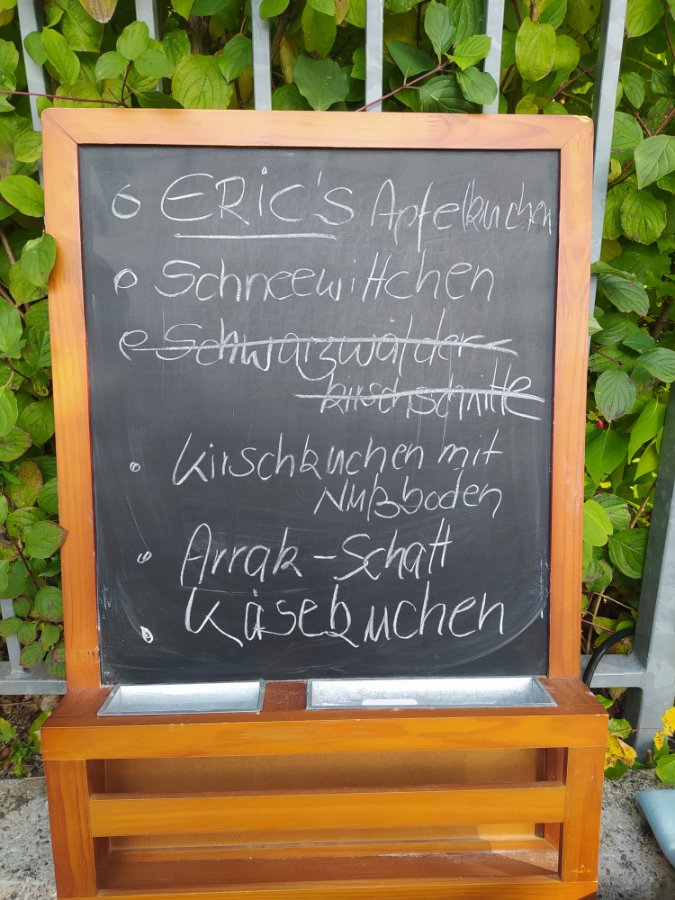 ERIC'S Apfelkuchen
Schneewittchen
Schwarzwälder
kirschschnitte
Kirschkuchen mit
Nußboden
Arrak-Schatt
Käsekuchen